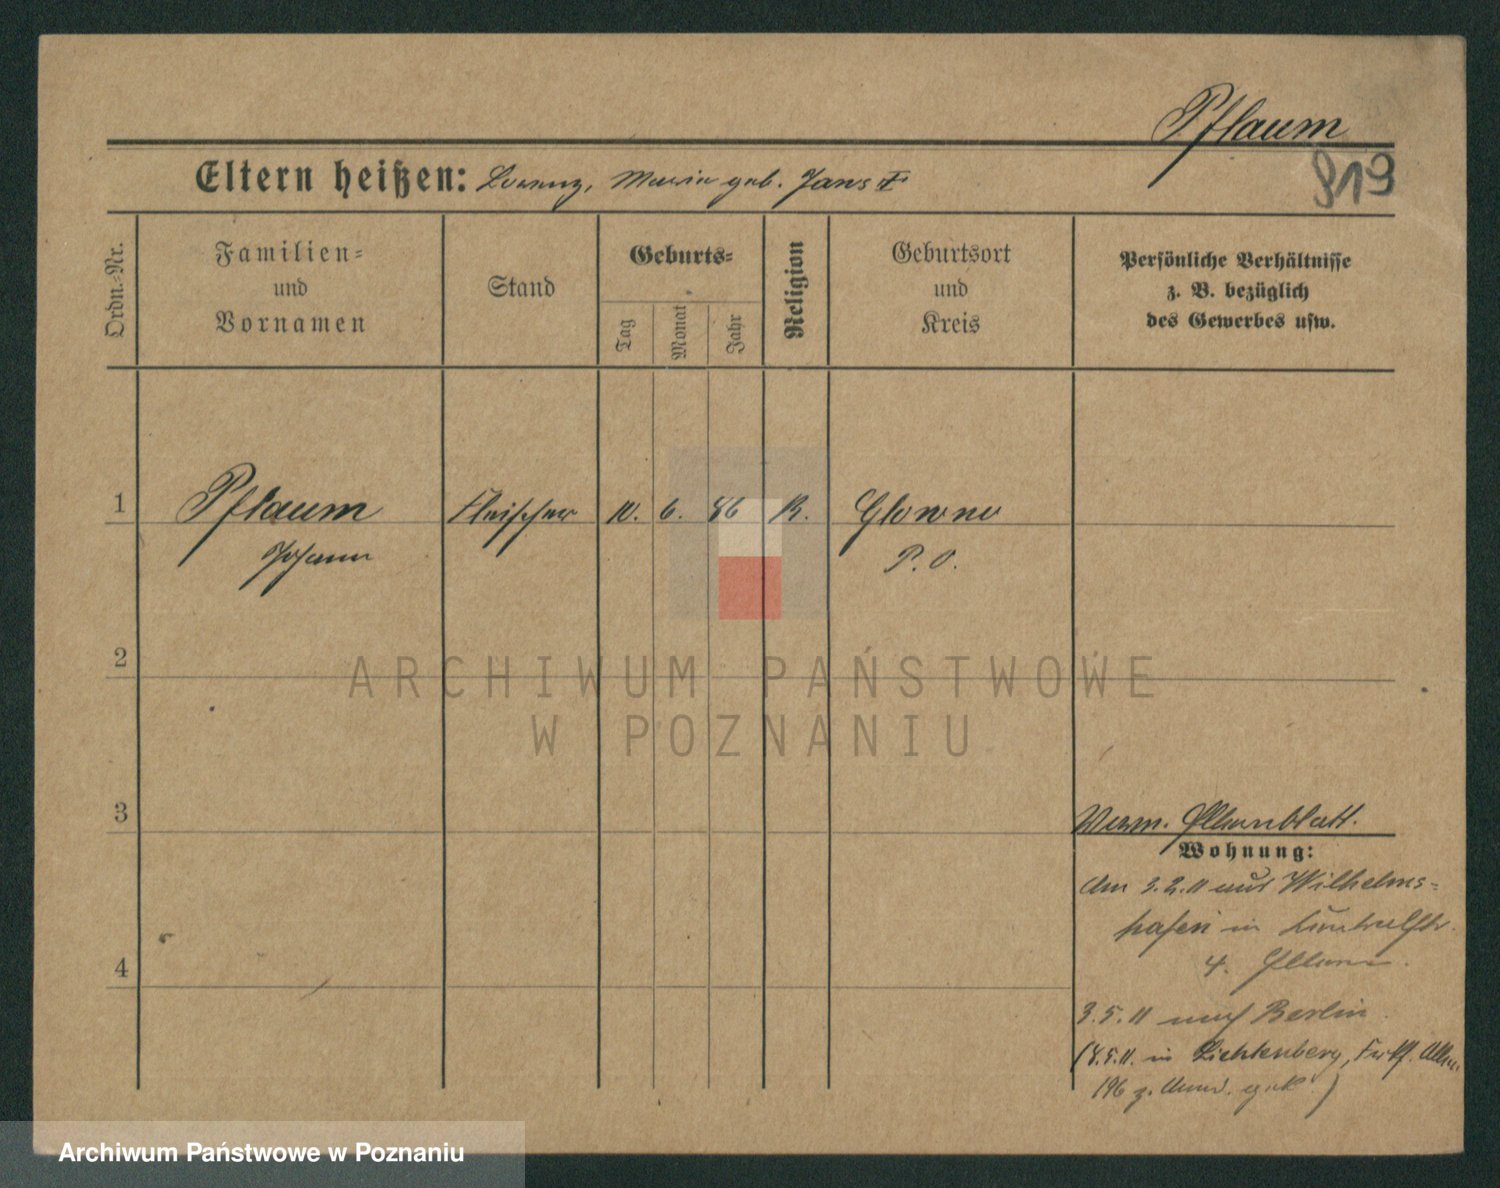 Pflaum
919
Eltern heißen: Lorenz, Maria geb. Jans
Ordn.-Nr.
Familien-
und
Vornamen
Stand
Geburts-
Tag
Monat
Jahr
Religion
Geburtsort
und
Kreis
Persönliche Verhältnisse
z. B. bezüglich
des Gewerbes usw.
1 Pflaum Fleischer 10. 6. 86 R. Glowno
Johann P. O.
2
ARCHIWUM PAŃSTWOWE
W POZNANIU
3
Verm. Elternblatt.
Wohnung:
Am 3.2.11 aus Wilhelms-
hafen in
4. Eltern.
4
3.5.11 nach Berlin.
(8.5.11. in Lichtenberg, Frkf. Allee
196 z. Anm. gek.)
Archiwum Państwowe w Poznaniu